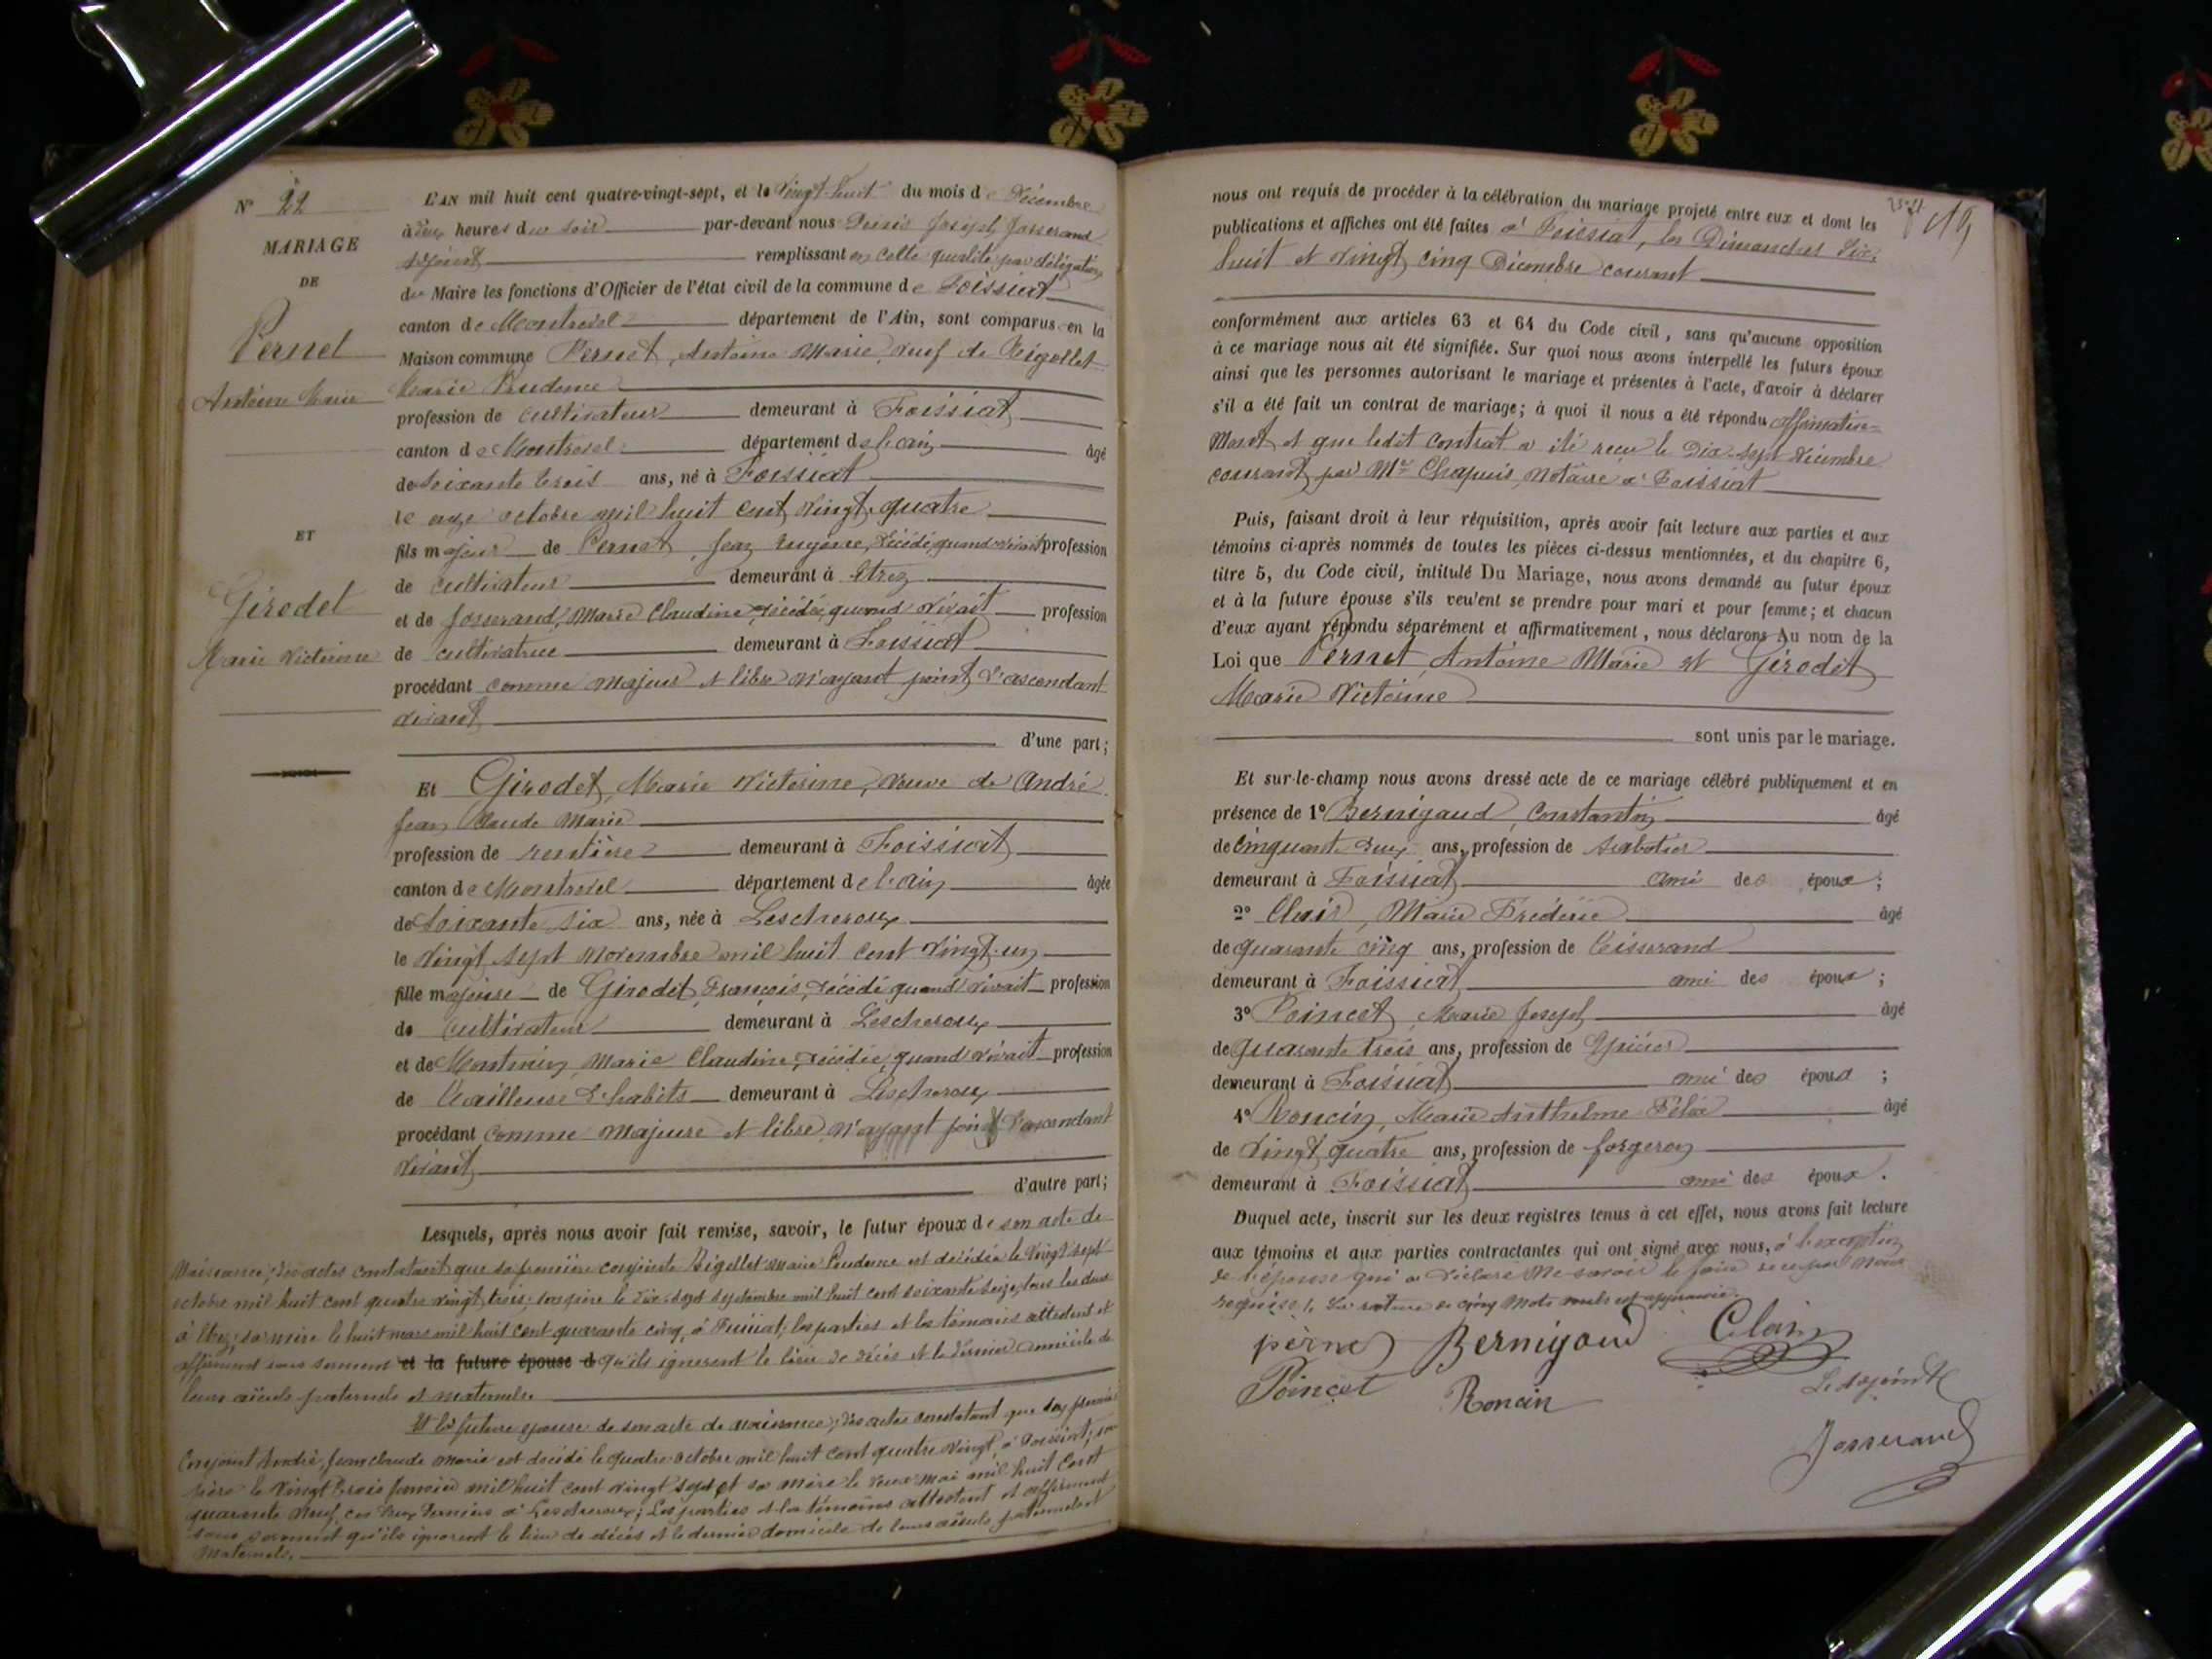 N° 22
MARIAGE
DE
Pernet
Antoine Marie
ET
Girodet
Marie Victorine
L'AN mil huit cent quatre-vingt-sept, et le Vingt-huit du mois de Décembre
à deux heures du soir par-devant nous Denis Joseph Josserand
adjoint remplissant en cette qualité par délégation
du Maire les fonctions d'Officier de l'état civil de la commune de Foissiat
canton de Montrevel département de l'Ain, sont comparus en la
Maison commune Pernet, Antoine Marie, veuf de Bigollet
Marie Prudence
profession de cultivateur demeurant à Foissiat
canton de Montrevel département de l'ain âgé
de soixante trois ans, né à Foissiat
le onze octobre mil huit cent vingt-quatre
fils majeur de Pernet Jean Eugène, décédé, quand vivait profession
de cultivateur demeurant à Etrez
et de Josserand, Marie Claudine, décédée, quand vivait profession
de cultivatrice demeurant à Foissiat
procédant comme majeur et libre n'ayant point d'ascendant
vivant
d'une part;
Et Girodet, Marie Victorine, Veuve de André
Jean Claude Marie
profession de rentière demeurant à Foissiat
canton de Montrevel département de l'ain âgée
de soixante six ans, née à Lescheroux
le vingt sept novembre mil huit cent vingt-un
fille majeure de Girodet, François, décédé quand vivait profession
de cultivateur demeurant à Lescheroux
et de Montmin Marie Claudine, décédée, quand vivait profession
de Tailleuse d'habits demeurant à Lescheroux
procédant comme majeure et libre, n'ayant point d'ascendant
vivant
d'autre part;
Lesquels, après nous avoir fait remise, savoir, le futur époux de son acte de
naissance; des actes constatant que sa première conjointe Bigollet Marie Prudence est décédée le vingt sept
octobre mil huit cent quatre vingt trois; son père le dix-sept septembre mil huit cent soixante seize, tous les deux
à Etrez; sa mère le huit mars mil huit cent quarante cinq, à Foissiat; les parties et les témoins attestent et
affirment sous serment et la future épouse d qu'ils ignorent le lieu de décès et le dernier domicile de
leurs aïeuls paternels et maternels.
Et la future épouse de son acte de naissance; des actes constatant que son premier
conjoint André, Jean Claude Marie est décédé le quatre octobre mil huit cent quatre vingt, à Foissiat; son
père le vingt trois Janvier mil huit cent vingt sept et sa mère le deux Mai mil huit cent
quarante neuf, ces deux derniers à Lescheroux; Les parties et les témoins attestent et affirment
sous serment qu'ils ignorent le lieu de décès et le dernier domicile de leurs aïeuls paternels et
maternels.
nous ont requis de procéder à la célébration du mariage projeté entre eux et dont les
publications et affiches ont été faites à Foissiat, les Dimanches dix-
huit et vingt cinq Décembre courant
conformément aux articles 63 et 64 du Code civil, sans qu'aucune opposition
à ce mariage nous ait été signifiée. Sur quoi nous avons interpellé les futurs époux
ainsi que les personnes autorisant le mariage et présentes à l'acte, d'avoir à déclarer
s'il a été fait un contrat de mariage; à quoi il nous a été répondu affirmative=
ment et que ledit contrat a été reçu le dix-sept décembre
courant par Me Chapuis, Notaire à Foissiat
Puis, faisant droit à leur réquisition, après avoir fait lecture aux parties et aux
témoins ci-après nommés de toutes les pièces ci-dessus mentionnées, et du chapitre 6,
titre 5, du Code civil, intitulé Du Mariage, nous avons demandé au futur époux
et à la future épouse s'ils veulent se prendre pour mari et pour femme; et chacun
d'eux ayant répondu séparément et affirmativement, nous déclarons Au nom de la
Loi que Pernet Antoine Marie et Girodet
Marie Victorine
sont unis par le mariage.
Et sur-le-champ nous avons dressé acte de ce mariage célébré publiquement et en
présence de 1° Bernigaud, Constantin âgé
de Cinquante deux ans, profession de sabotier
demeurant à Foissiat ami des époux;
2° Clair, Marie Frédéric âgé
de quarante cinq ans, profession de Tisserand
demeurant à Foissiat ami des époux;
3° Poincet, Marie Joseph âgé
de Quarante trois ans, profession de Epicier
demeurant à Foissiat ami des époux;
4° Roncin, Marie Anthelme Félix âgé
de Vingt quatre ans, profession de forgeron
demeurant à Foissiat ami des époux.
Duquel acte, inscrit sur les deux registres tenus à cet effet, nous avons fait lecture
aux témoins et aux parties contractantes qui ont signé avec nous, à l'exception
de l'épouse qui a déclaré ne savoir le faire de ce par nous
requise. La rature de cinq mots nuls est approuvée.
pernet Bernigaud Clair
Poincet Roncin
L'adjoint
Josserand